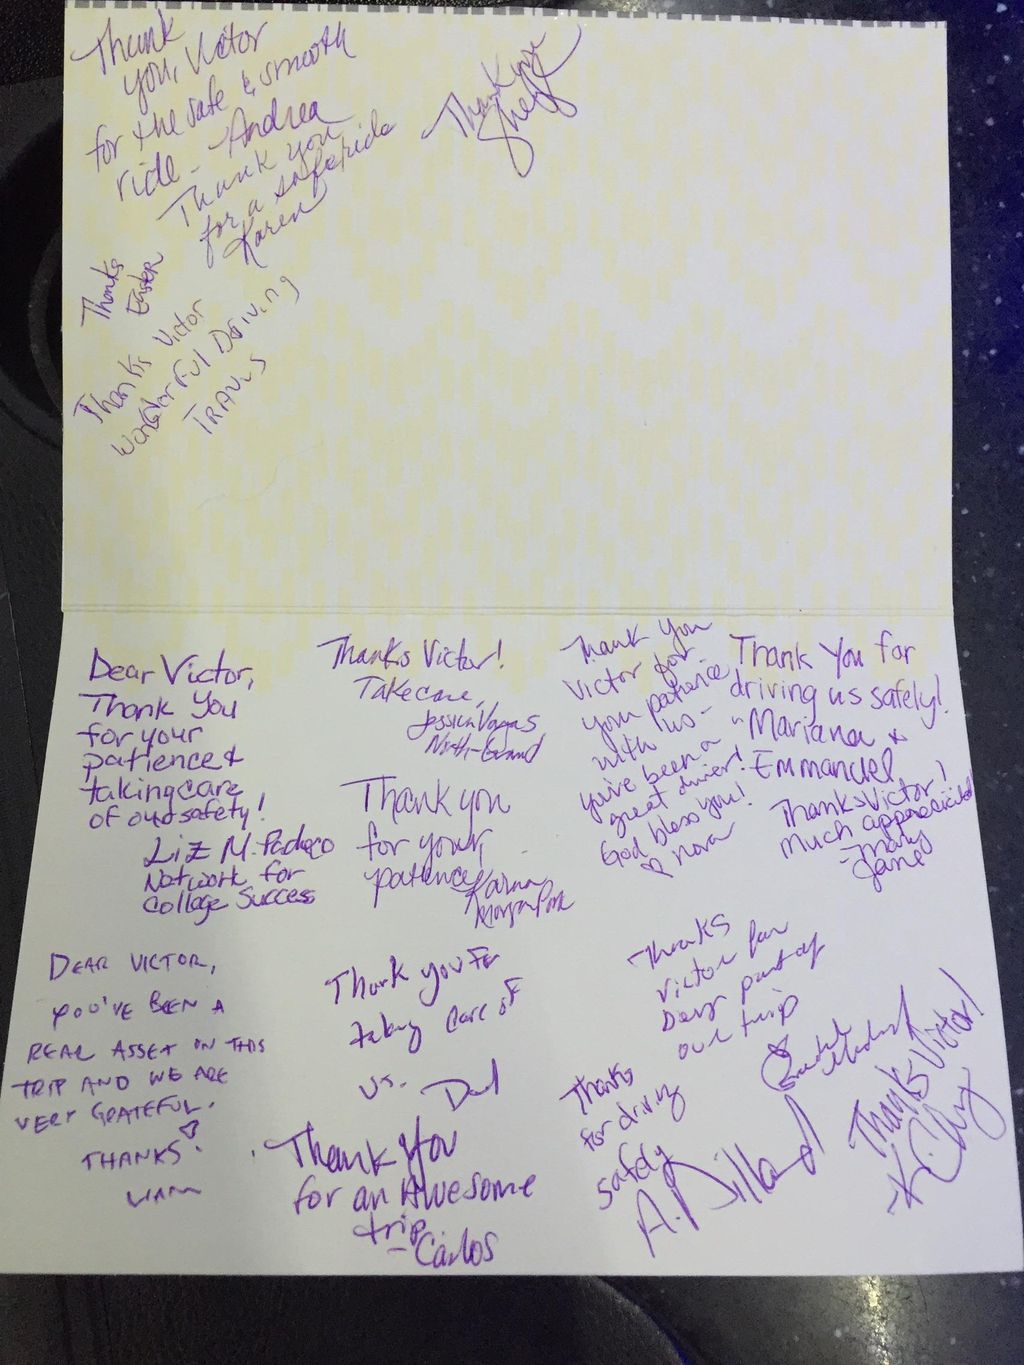 Thank
you, Victor
for the safe & smooth
ride - Andrea
Thank you
for a safe ride
Karen
Thank you
Thanks
Easter
Thanks Victor
wonderful Driving
TRAVIS
Dear Victor,
Thank You
for your
patience &
taking care
of our safety!
Liz M. Pacheco
Network for
College Success
Thanks Victor!
Take care,
Jessica Vargas
North-Grand
Thank you
for your
patience
Karina
Morgan Park
Thank you
Victor for
your patience
with us -
you've been a
great driver!
God bless you!
♡ Nora
Thank You for
driving us safely!
"Mariana &
Emmanuel
Thanks Victor!
Much appreciated
- Mary
Jane
DEAR VICTOR,
YOU'VE BEEN A
REAL ASSET ON THIS
TRIP AND WE ARE
VERY GRATEFUL.
THANKS!
LIAM
Thank you for
taking care of
us.
Thank You
for an Awesome
trip
- Carlos
Thanks
Victor for
being part of
our trip
Thanks
for driving
safely
A. Dillard
Thanks Victor!